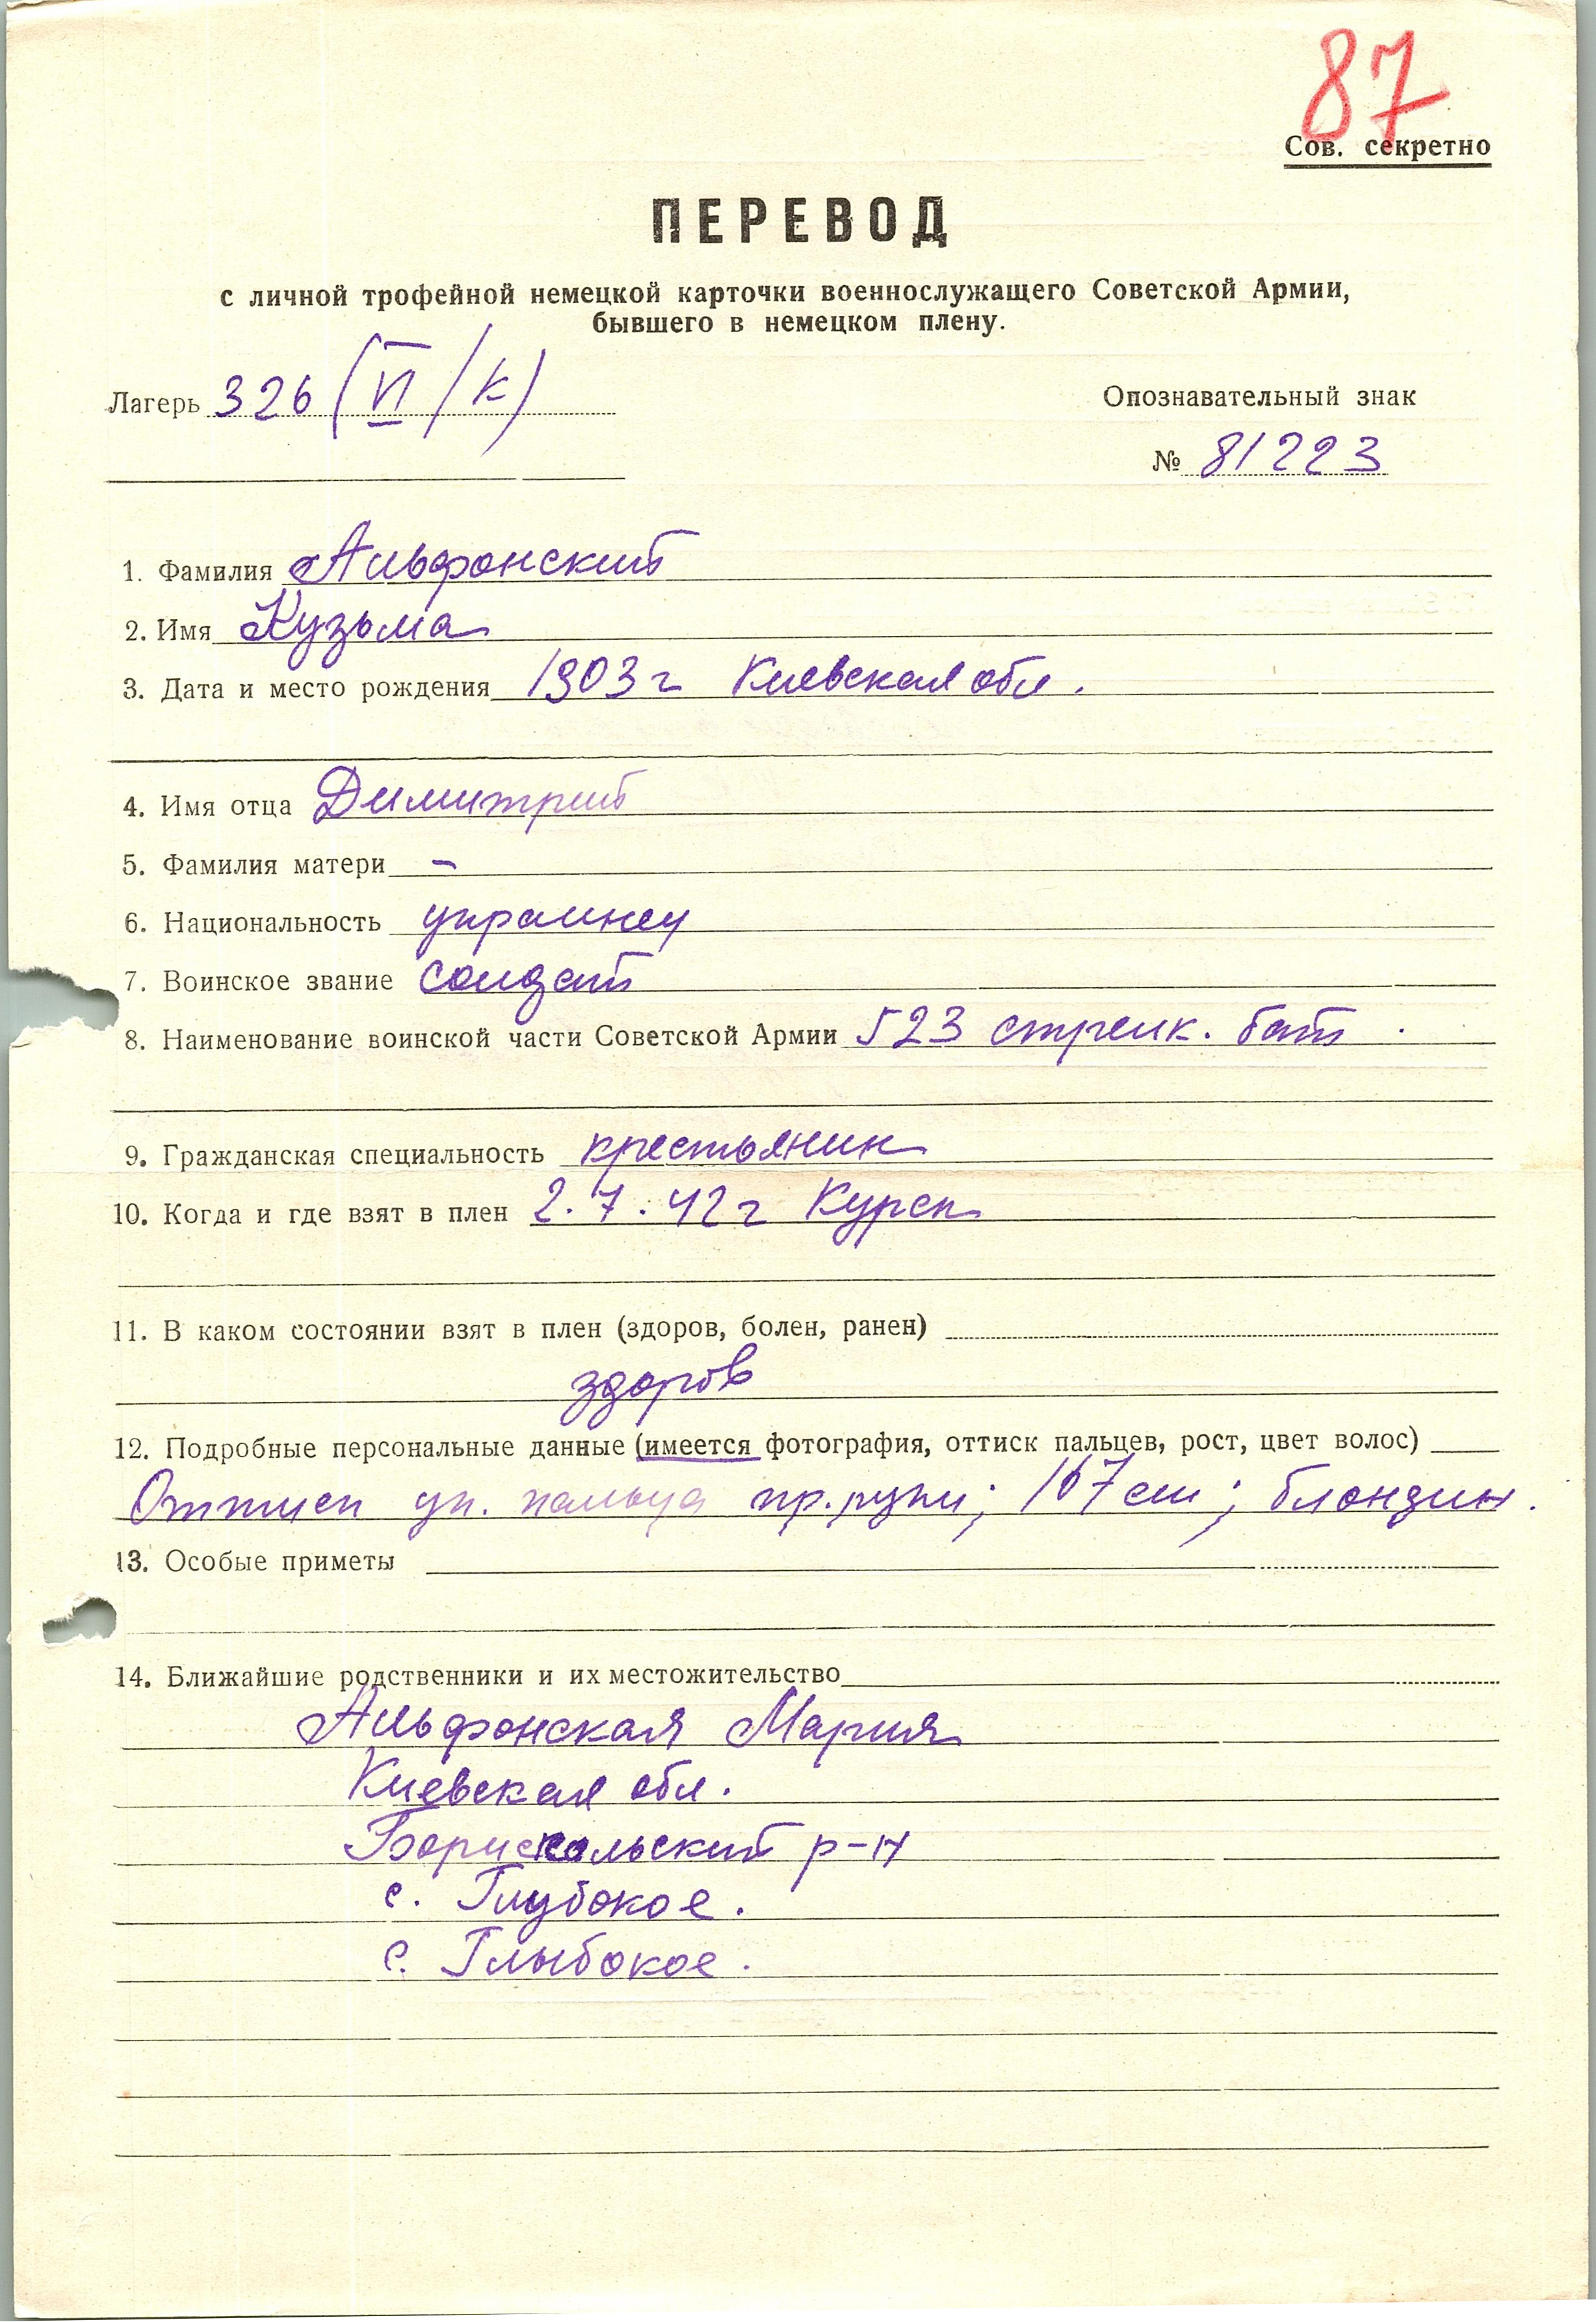 87
Сов. секретно
ПЕРЕВОД
с личной трофейной немецкой карточки военнослужащего Советской Армии,
бывшего в немецком плену.
Лагерь 326 (VI/К)
Опознавательный знак
№ 81223
1. Фамилия Альфонский
2. Имя Кузьма
3. Дата и место рождения 1903 г Киевская обл.
4. Имя отца Димитрий
5. Фамилия матери –
6. Национальность украинец
7. Воинское звание солдат
8. Наименование воинской части Советской Армии 523 стрелк. бат.
9. Гражданская специальность крестьянин
10. Когда и где взят в плен 2.7.42 г Курск
11. В каком состоянии взят в плен (здоров, болен, ранен)
здоров
12. Подробные персональные данные (имеется фотография, оттиск пальцев, рост, цвет волос)
Оттиск ук. пальца пр. руки; 167 см; блондин.
13. Особые приметы
14. Ближайшие родственники и их местожительство
Альфонская Мария
Киевская обл.
Борискольский р-н
с. Глубокое.
с. Глыбокое.